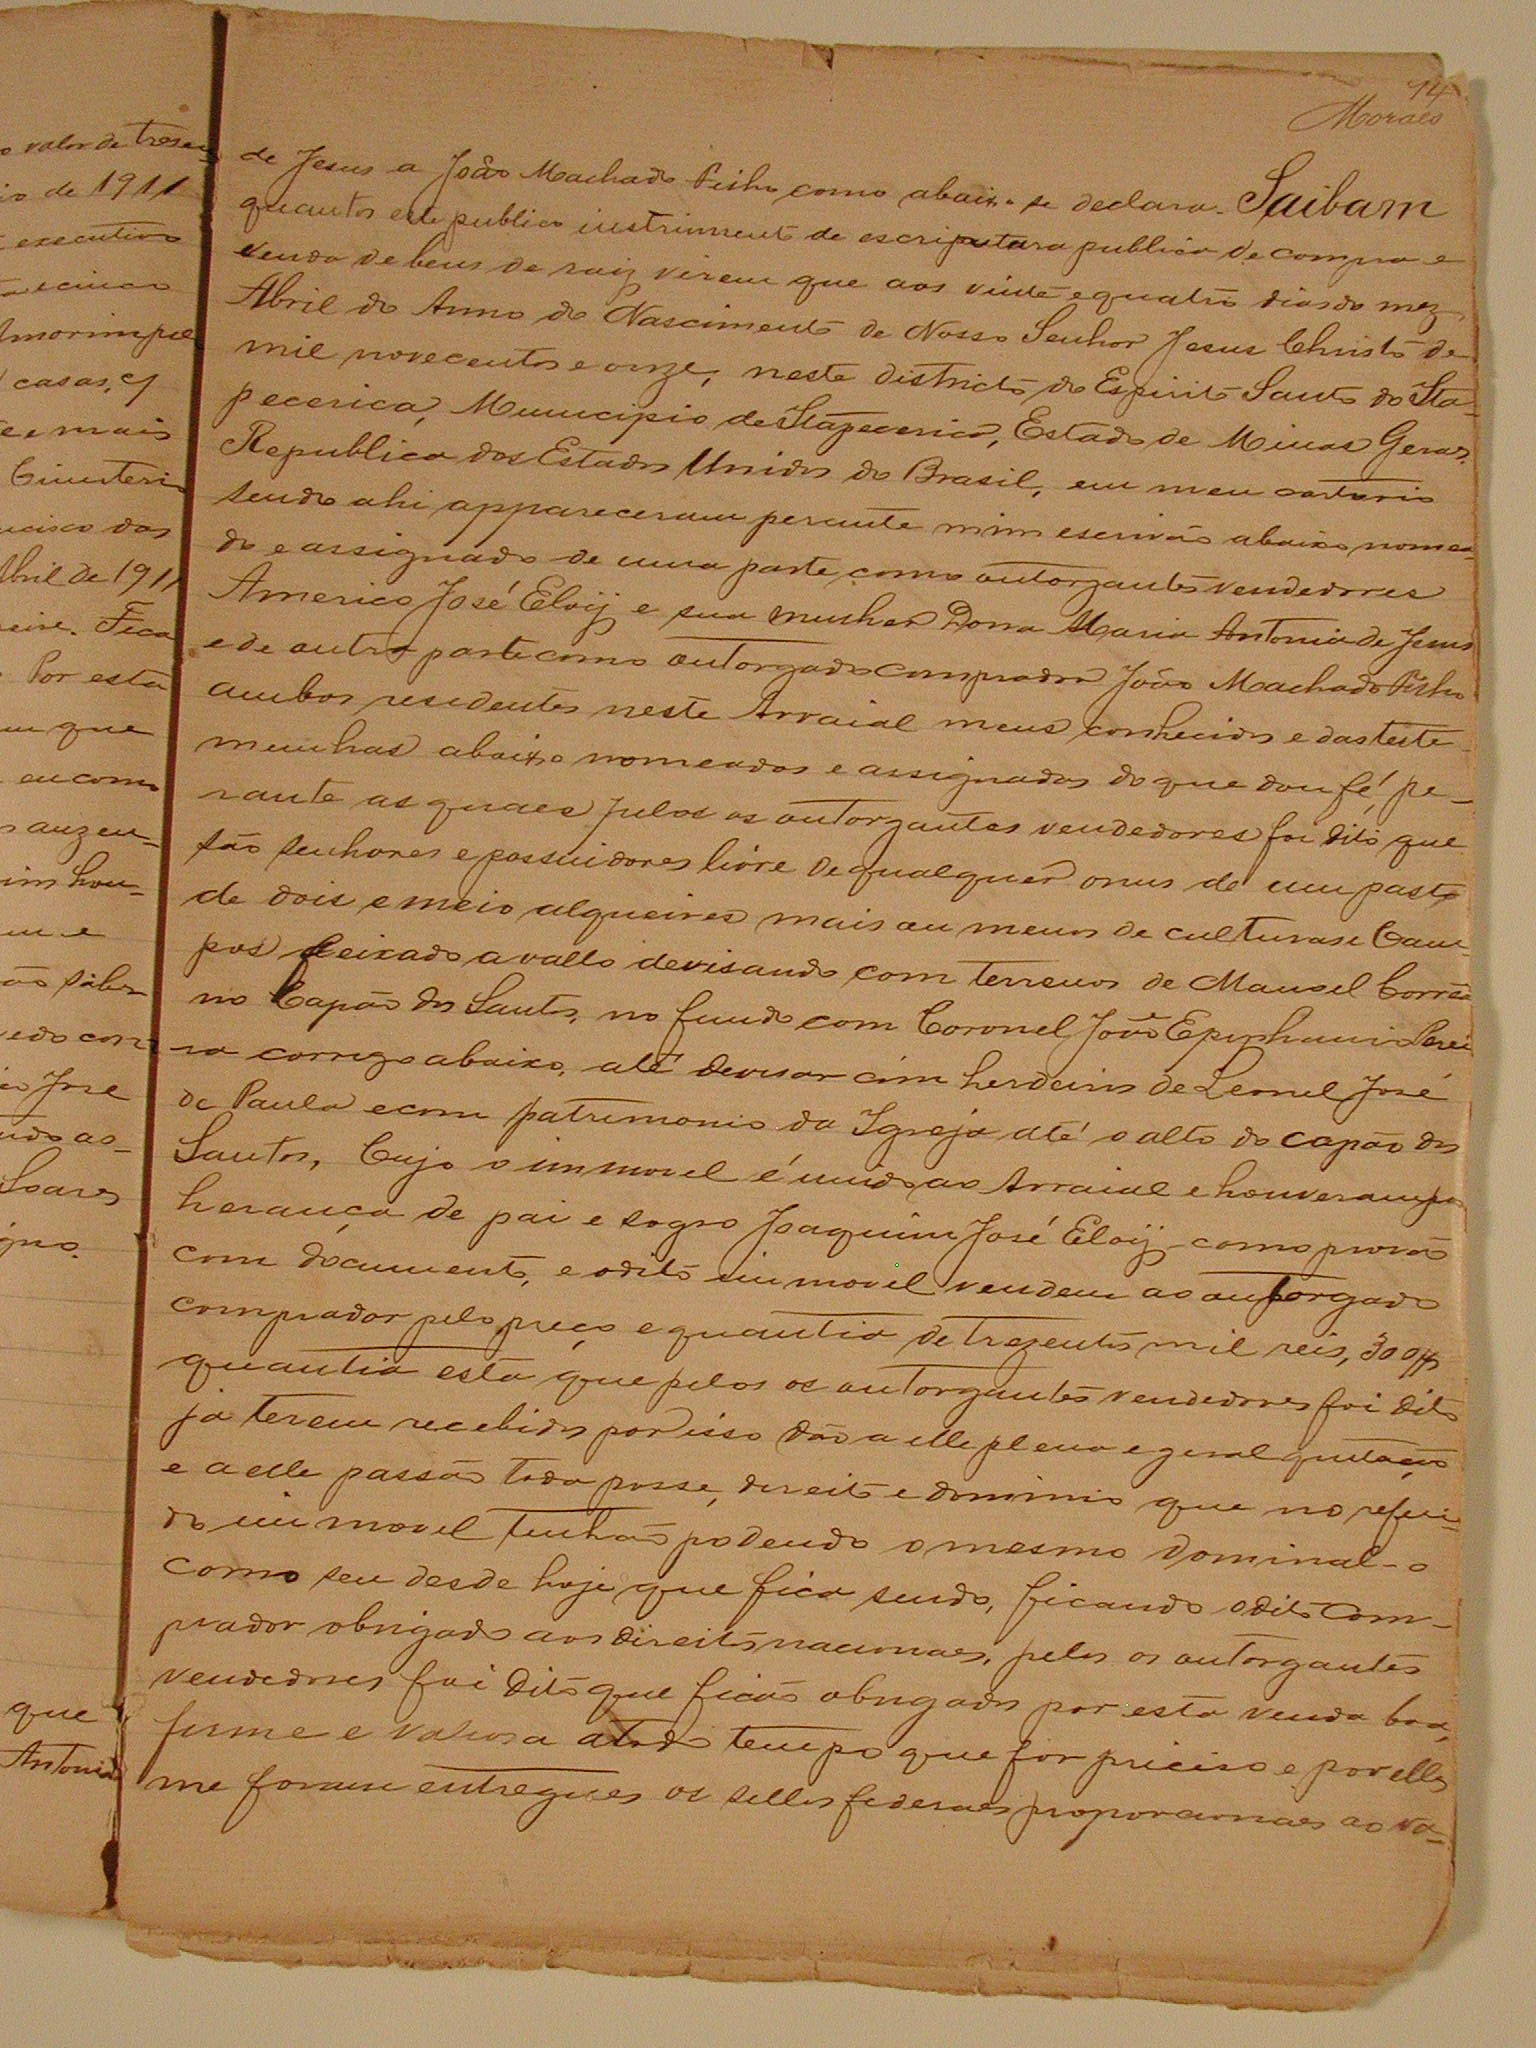 o valor de tresen
io de 1911
executivo
e cinco
Amorim pel
casas, e
e mais
Cimiteri
ncisco das
Abril de 1911
eire. Fica
Por esta
em que
eu como
auzen-
im hou-
em e
ão sabe
edo con
José
ndo as-
Soares
gno.
que
Antonio
14
Moraes
de Jesus a João Machado Pinho como abaixo se declara. Saibam
quantos este publico instrumento de escriptura publica de compra e
venda de bens de raiz virem que aos vinte e quatro dias do mez
Abril do Anno do Nascimento de Nosso Senhor Jesus Christo de
mil novecentos e onze, neste districto do Espirito Santo do Ita-
pecerica, Municipio de Itapecerica, Estado de Minas Geraes
Republica dos Estados Unidos do Brasil, em meu cartorio
sendo ahi appareceram perante mim escrivão abaixo nomea-
do e assignado de uma parte como outorgantes vendedores
Americo José Eloÿ e sua mulher Dona Maria Antonia de Jesus
e de outra parte como outorgado comprador João Machado Pinho
ambos residentes neste Arraial meus conhecidos e das teste-
munhas abaixo nomeadas e assignadas do que dou fé, pe-
rante as quaes pelos os outorgantes vendedores foi dito que
são senhores e possuidores livre de qualquer onus de um pasto
de dois e meio alqueires mais ou menos de culturas e Cam-
pos feixado a vallo devisando com terrenos de Manoel Corrêa
no Capão dos Santos, no fundo com Coronel João Epiphanio Perei
ra corrego abaixo, até devisar com herdeiros de Leonel José
de Paula e com patrimonio da Igreja até o alto do capão dos
Santos, Cujo o immovel é unido ao Arraial e houveram por
herança de pai e sogro Joaquim José Eloÿ como provão
com documento, e o dito immovel vendem ao outorgado
comprador pelo preço e quantia de trezentos mil reis, 300$
quantia esta que pelos os outorgantes vendedores foi dito
ja terem recebido por isso dão a elle plena e geral quitação
e a elle passão toda posse, direito e dominio que no referi-
do immovel tinhão podendo o mesmo dominal-o
como seu desde hoje que fica sendo, ficando o dito com-
prador obrigado aos direitos nacionaes, pelos os outorgantes
vendedores foi dito que ficão obrigados por esta venda boa,
firme e valiosa a todo tempo que for preciso e por elles
me foram entregues os sellos federaes proporcionaes ao va-